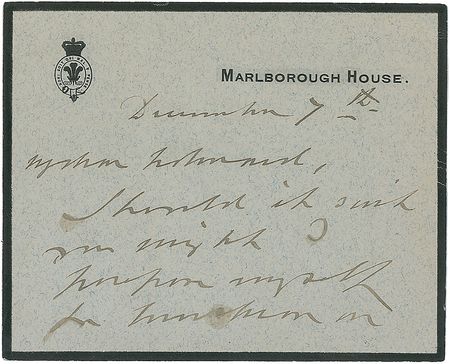 MARLBOROUGH HOUSE.
December 7th
My dear
Should it suit
you might I
propose myself
for luncheon on